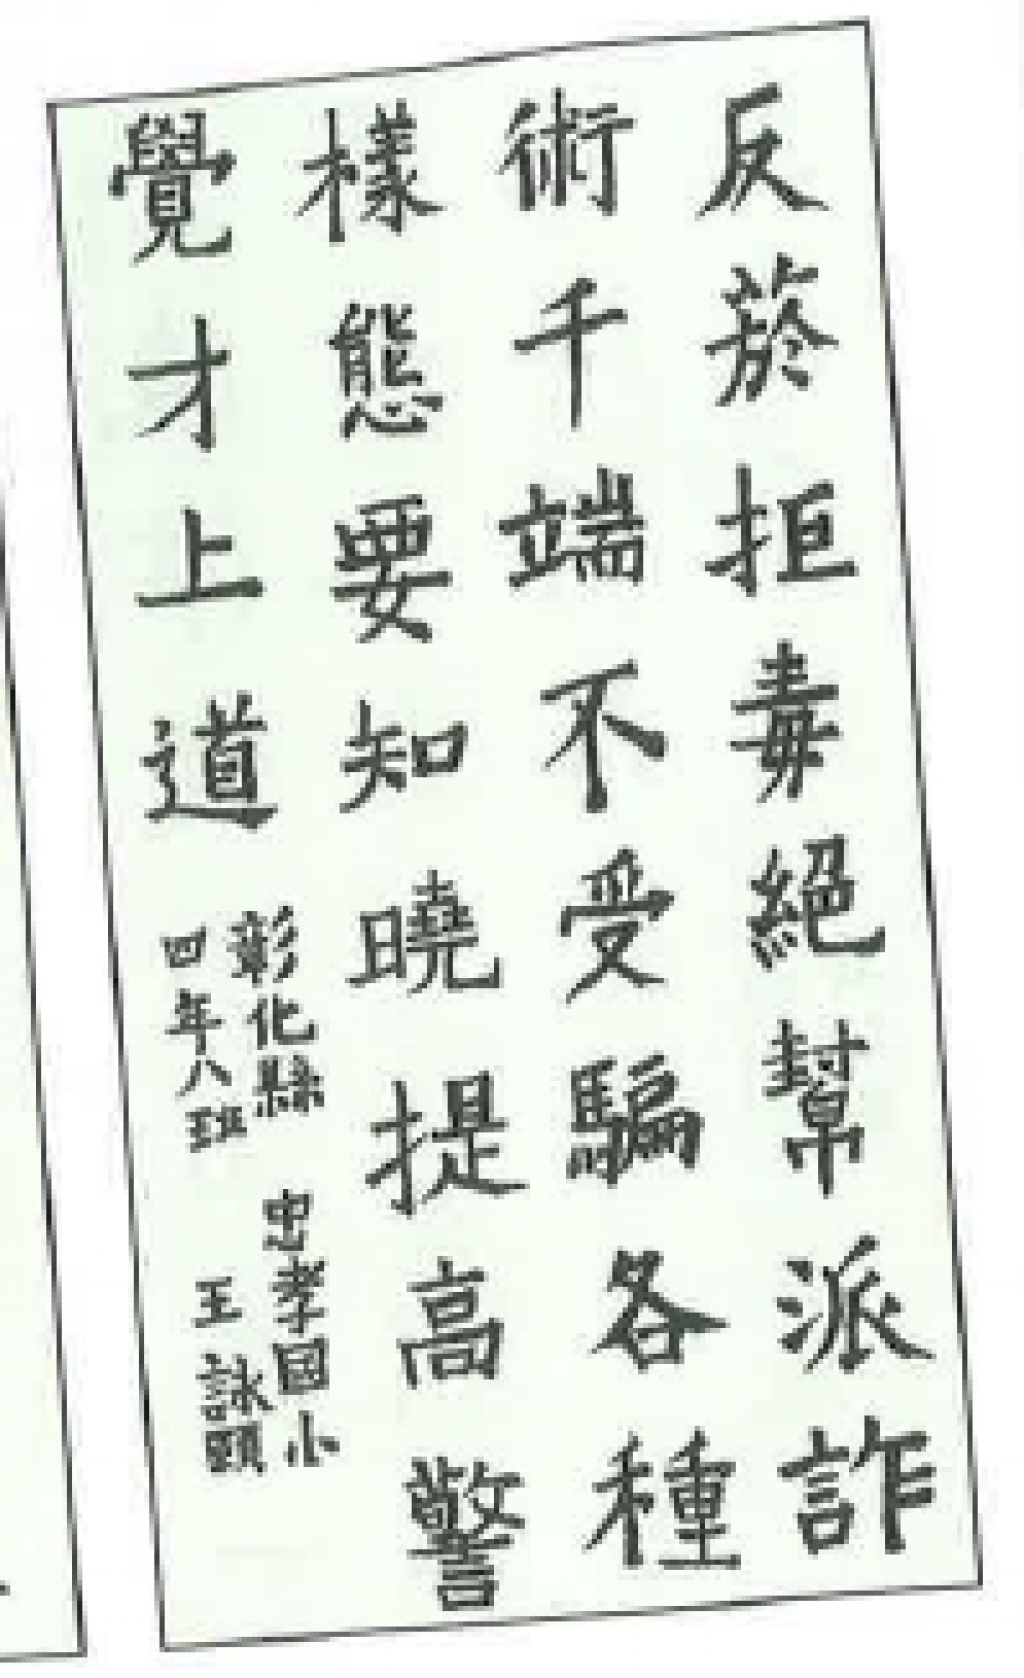 反菸拒毒絕幫派詐
術千端不受騙各種
樣態要知曉提高警
覺才上道
彰化縣 忠孝國小
四年八班 王詠頤